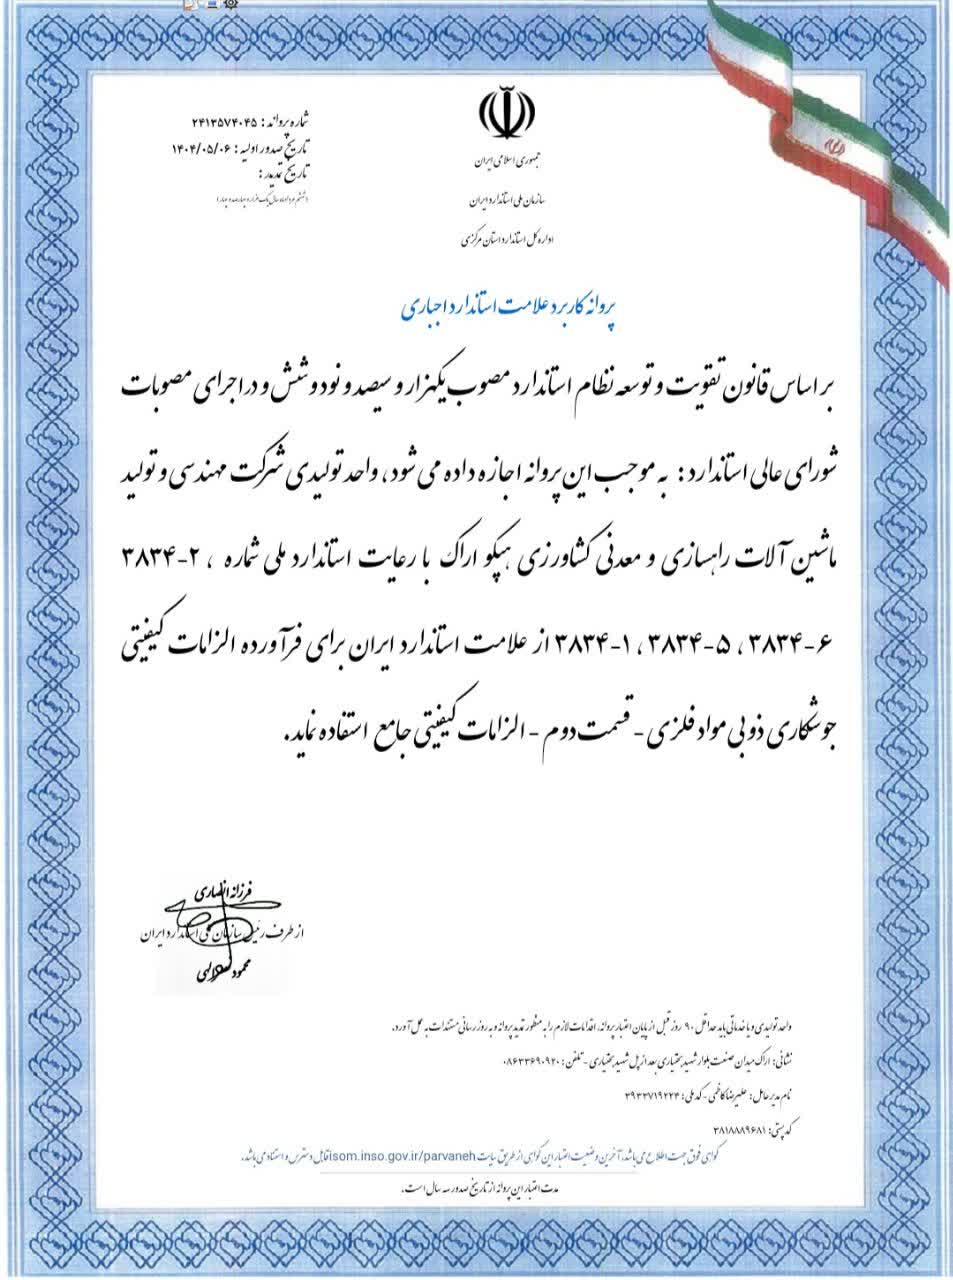 جمهوری اسلامی ایران
سازمان ملی استاندارد ایران
اداره کل استاندارد استان مرکزی
شماره پروانه : ۲۴۱۳۵۷۴۰۴۵
تاریخ صدور اولیه : ۱۴۰۴/۰۵/۰۶
تاریخ تمدید :
(ششم مرداد ماه سال یک هزار و چهارصد و چهار)
پروانه کاربرد علامت استاندارد اجباری
بر اساس قانون تقویت و توسعه نظام استاندارد مصوب یکهزار و سیصد و نود و شش و در اجرای مصوبات
شورای عالی استاندارد : به موجب این پروانه اجازه داده می شود، واحد تولیدی شرکت مهندسی و تولید
ماشین آلات راهسازی و معدنی کشاورزی هپکو اراک با رعایت استاندارد ملی شماره ، ۲-۳۸۳۴
۶-۳۸۳۴ ، ۵-۳۸۳۴ ، ۱-۳۸۳۴ از علامت استاندارد ایران برای فرآورده الزامات کیفیتی
جوشکاری ذوبی مواد فلزی - قسمت دوم - الزامات کیفیتی جامع استفاده نماید.
فرزانه انصاری
از طرف رئیس سازمان ملی استاندارد ایران
محمود
واحد تولیدی و یا خدماتی باید حداقل ۹۰ روز قبل از پایان اعتبار پروانه، اقدامات لازم را به منظور تمدید پروانه و به روز رسانی مستندات به عمل آورد.
نشانی: اراک میدان صنعت بلوار شهید بختیاری بعد از پل شهید بختیاری - تلفن: ۰۸۶۳۳۶۹۰۹۲۰
نام مدیر عامل: علیرضا کاظمی - کد ملی: ۳۹۳۳۷۱۹۲۲۴
کد پستی: ۳۸۱۸۸۸۹۶۸۱
گواهی فوق جهت اطلاع می باشد، آخرین وضعیت اعتبار این گواهی از طریق سایت isom.inso.gov.ir/parvaneh قابل دسترس و استناد می باشد.
مدت اعتبار این پروانه از تاریخ صدور سه سال است.